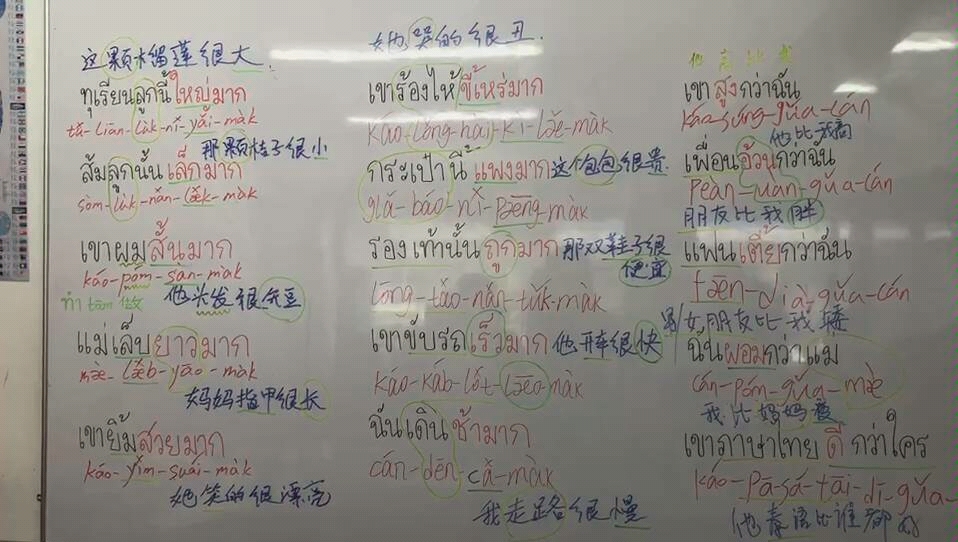 这颗榴莲很大
ทุเรียนลูกนี้ใหญ่มาก
tú-lian-lùk-ní-yǎi-màk
那颗桔子很小
ส้มลูกนั้นเล็กมาก
sòm-lùk-nán-lěk-màk
เขาผมสั้นมาก
káo-póm-sàn-màk
ทำ tām 做
他头发很短
แม่เล็บยาวมาก
mæ̀-læ̌b-yāo-màk
妈妈指甲很长
เขายิ้มสวยมาก
káo-yím-suái-màk
她笑的很漂亮
她哭的很丑
เขาร้องไห้ขี้เหร่มาก
káo-lóng-hài-kì-lǒe-màk
กระเป๋านี้แพงมาก 这个包包很贵
giǎ-báo-nǐ-pāēng-màk
รองเท้านั้นถูกมาก 那双鞋子很便宜
lōng-táo-nán-tǔk-màk
เขาขับรถเร็วมาก 他开车很快
káo-káb-lót-lēeo-màk
ฉันเดินช้ามาก
cán-dēn-cǎ-màk
我走路很慢
他高比我
เขาสูงกว่าฉัน
káo-súng-gǔa-cán
他比我高
เพื่อนอ้วนกว่าฉัน
peàn-uan-gǔa-cán
朋友比我胖
แฟนเตี้ยกว่าฉัน
fāēn-dià-gǔa-cán
男/女朋友比我矮
ฉันผอมกว่าแม่
cán-póm-gǔa-mæ̀
我比妈妈瘦
เขาภาษาไทยดีกว่าใคร
káo-pā-sá-tāi-dī-gǔa-
他泰语比谁都好